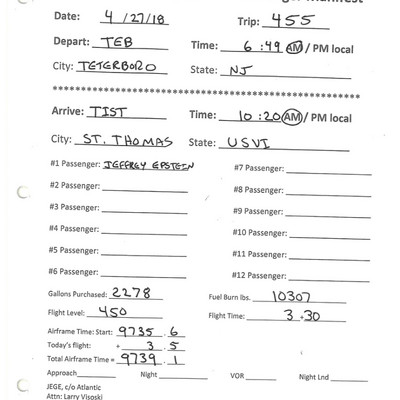 Manifest
Date: 4/27/18 Trip: 455
Depart: TEB Time: 6:49 AM/ PM local
City: TETERBORO State: NJ
****************************************************************
Arrive: TIST Time: 10:20 AM/ PM local
City: ST. THOMAS State: USVI
#1 Passenger: JEFFREY EPSTEIN #7 Passenger:
#2 Passenger: #8 Passenger:
#3 Passenger: #9 Passenger:
#4 Passenger: #10 Passenger:
#5 Passenger: #11 Passenger:
#6 Passenger: #12 Passenger:
Gallons Purchased: 2278 Fuel Burn lbs. 10307
Flight Level: 450 Flight Time: 3+30
Airframe Time: Start: 9735.6
Today's flight: + 3.5
Total Airframe Time = 9739.1
Approach Night VOR Night Lnd
JEGE, c/o Atlantic
Attn: Larry Visoski